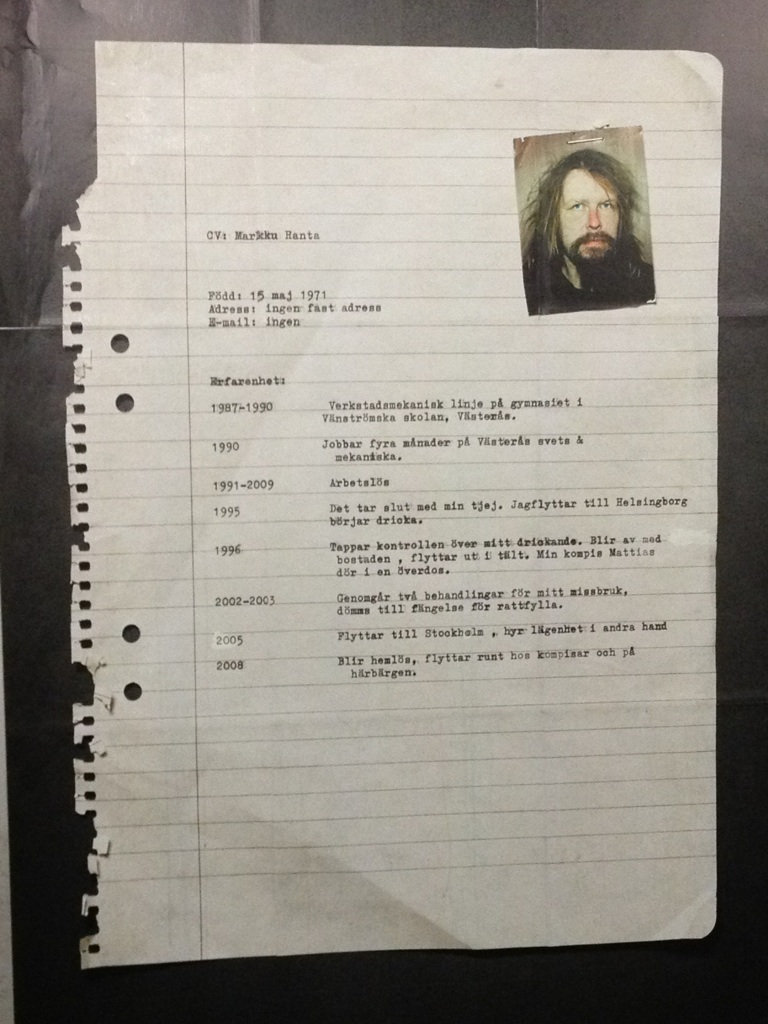 CV: Markku Ranta
Född: 15 maj 1971
Adress: ingen fast adress
E-mail: ingen
Erfarenhet:
1987-1990 Verkstadsmekanisk linje på gymnasiet i
Vänströmska skolan, Västerås.
1990 Jobbar fyra månader på Västerås svets &
mekaniska.
1991-2009 Arbetslös
1995 Det tar slut med min tjej. Jagflyttar till Helsingborg
börjar dricka.
1996 Tappar kontrollen över mitt drickande. Blir av med
bostaden , flyttar ut i tält. Min kompis Mattias
dör i en överdos.
2002-2003 Genomgår två behandlingar för mitt missbruk,
dömms till fängelse för rattfylla.
2005 Flyttar till Stockholm , hyr lägenhet i andra hand
2008 Blir hemlös, flyttar runt hos kompisar och på
härbärgen.